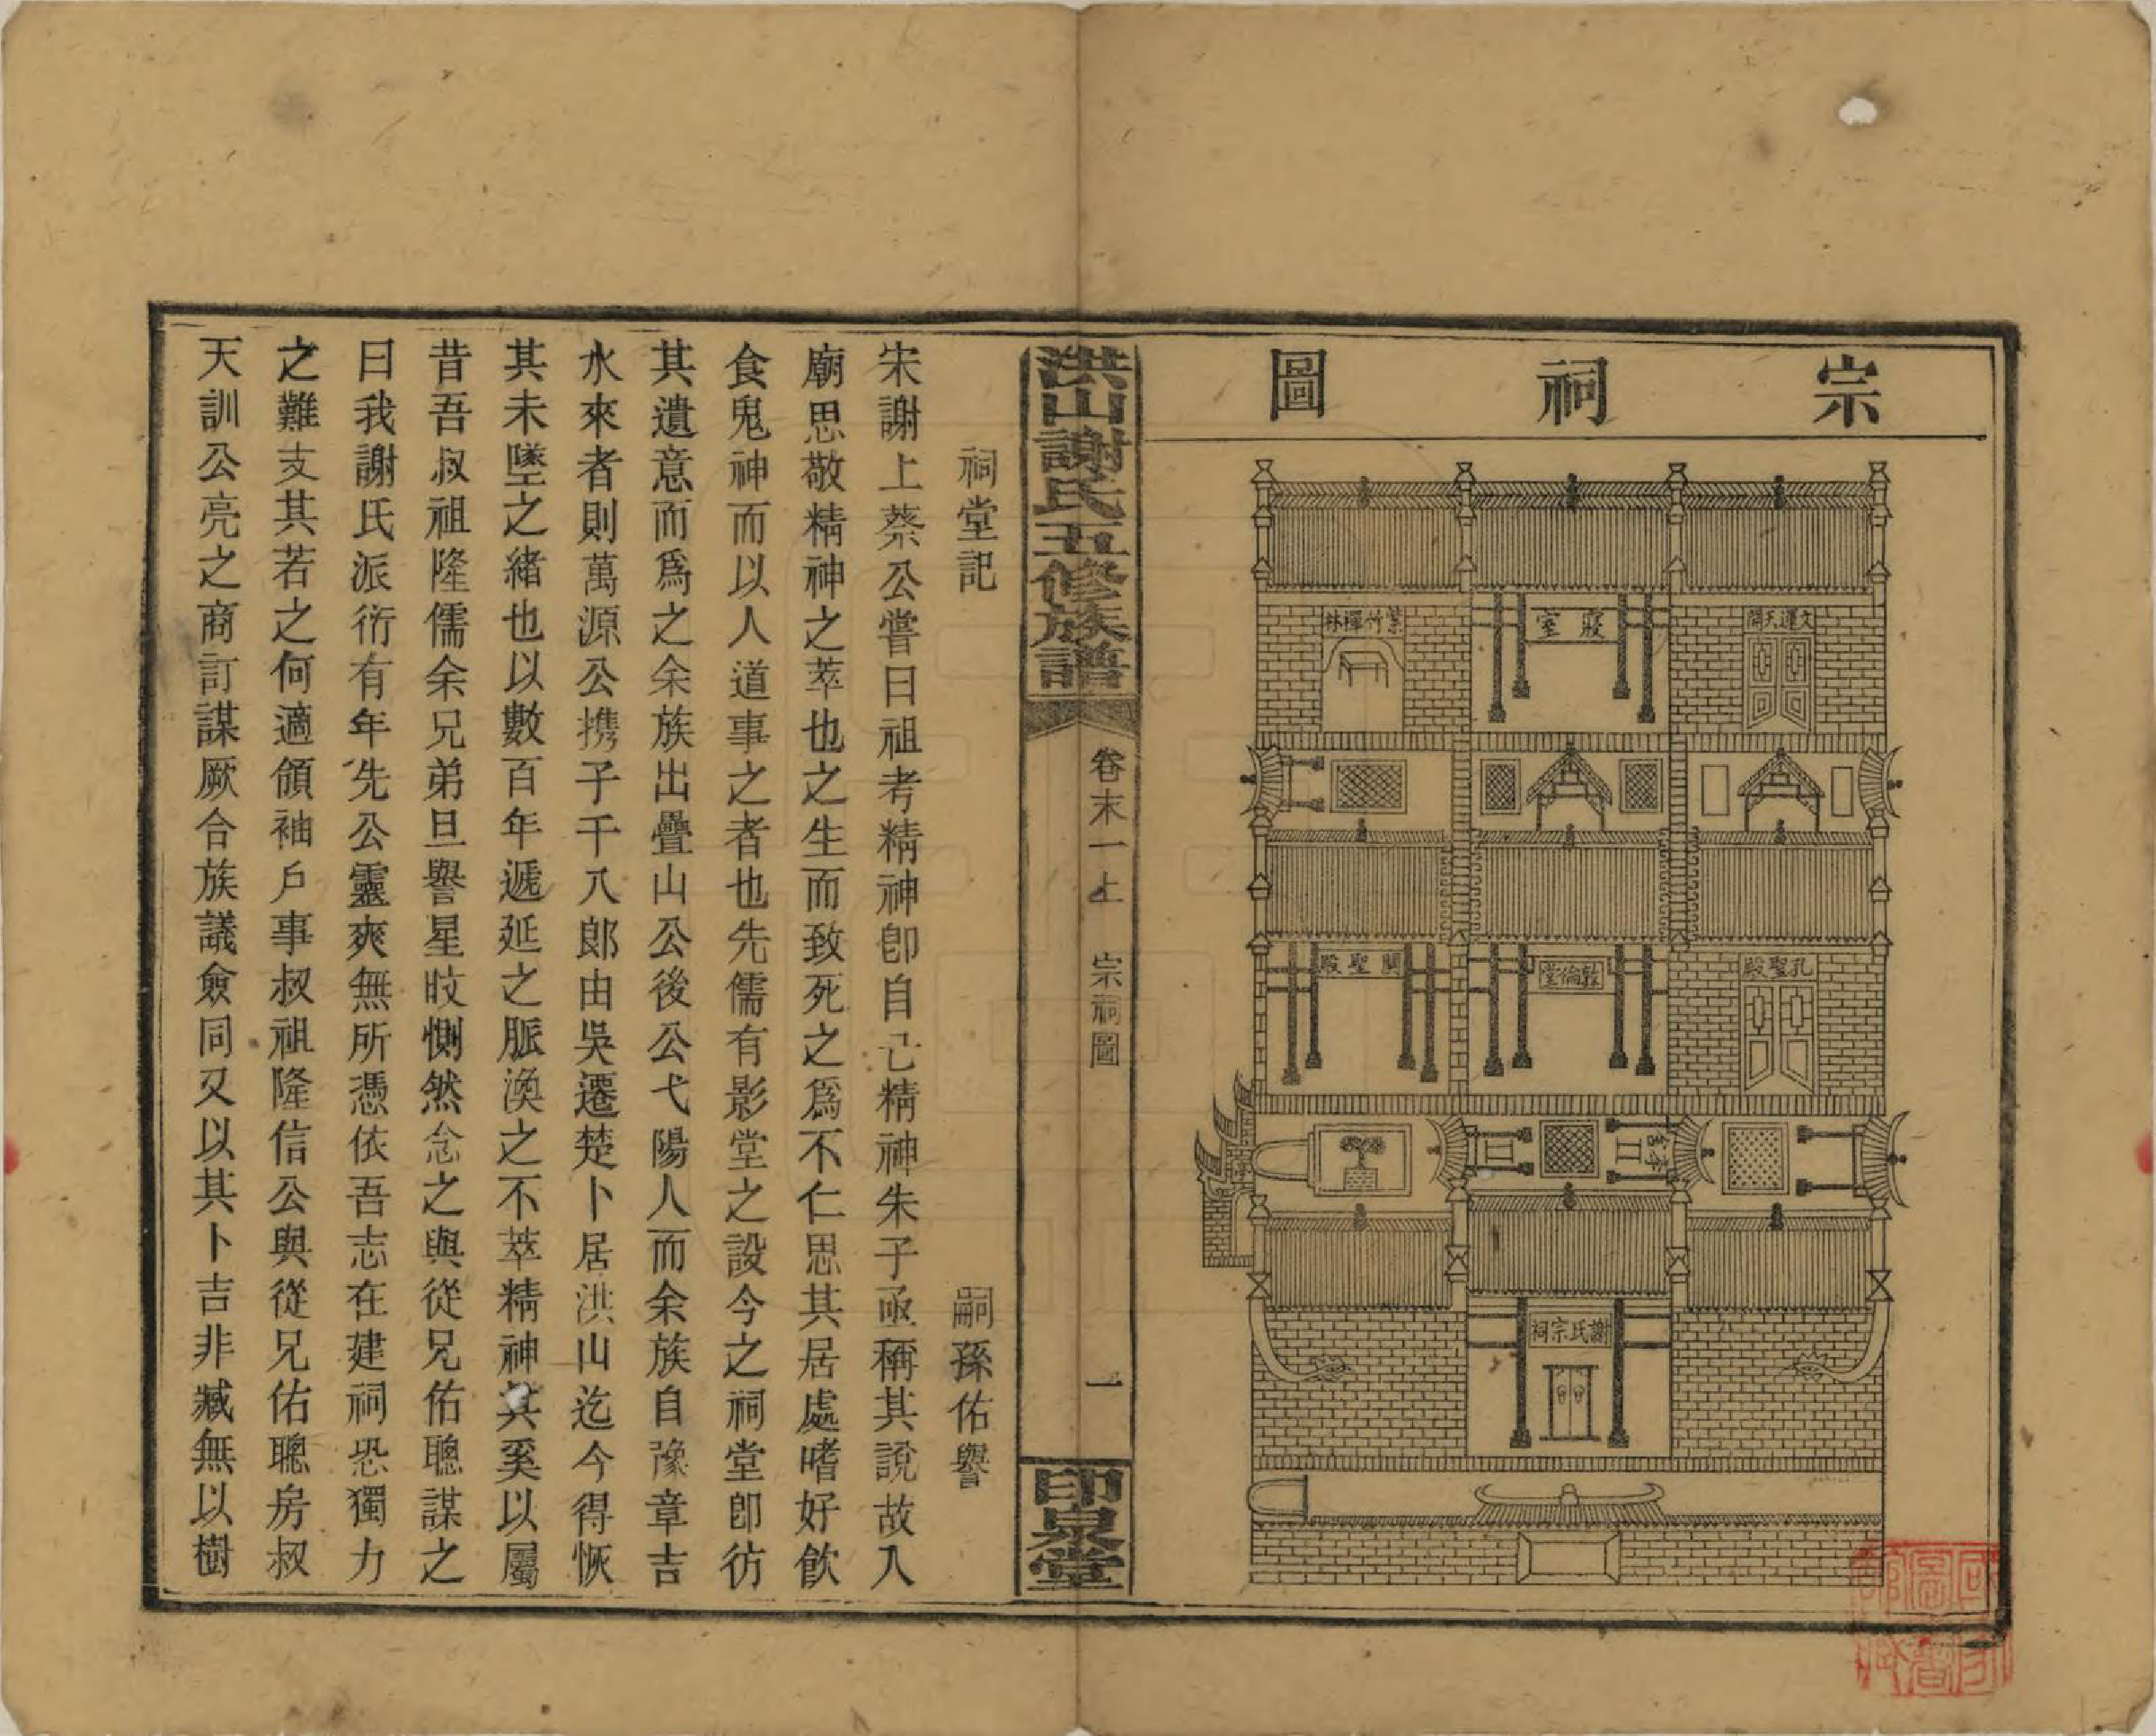 宗祠圖
文運天開
寢室
紫竹禪林
孔聖殿
敦倫堂
關聖殿
謝氏宗祠
洪山謝氏五修族譜
卷末一上
宗祠圖
一
印泉堂
祠堂記
嗣孫佑譽
宋謝上蔡公嘗曰祖考精神卽自己精神朱子亟稱其說故入
廟思敬精神之萃也之生而致死之爲不仁思其居處嗜好飮
食鬼神而以人道事之者也先儒有影堂之設今之祠堂卽彷
其遺意而爲之余族出疊山公後公弋陽人而余族自豫章吉
水來者則萬源公携子千八郎由吳遷楚卜居洪山迄今得恢
其未墜之緒也以數百年遞延之脈渙之不萃精神其奚以屬
昔吾叔祖隆儒余兄弟旦譽星旼惻然念之與從兄佑聰謀之
曰我謝氏派衍有年先公靈爽無所憑依吾志在建祠恐獨力
之難支其若之何適領袖戶事叔祖隆信公與從兄佑聰房叔
天訓公亮之商訂謀厥合族議僉同又以其卜吉非臧無以樹